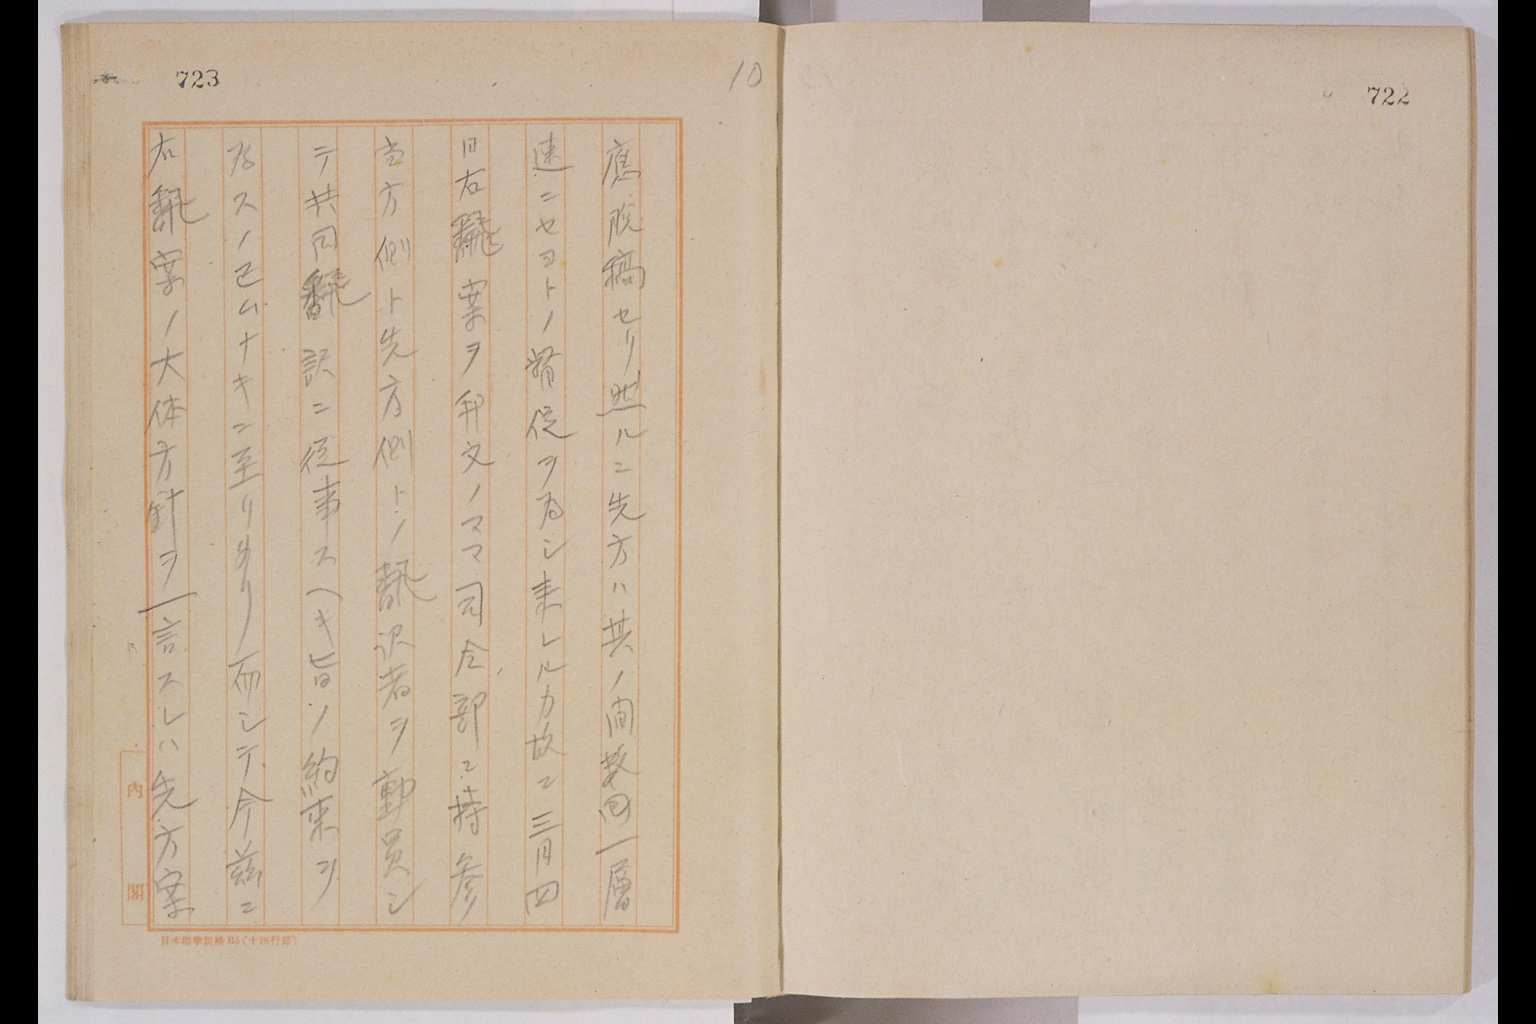 722
10
723
應脱稿セリ然ルニ先方ハ其ノ間数回一層
速ニセヨトノ督促ヲ為シ来レルカ故ニ三月四
日右飜案ヲ邦文ノママ司令部ニ持参
当方側ト先方側トノ飜訳者ヲ動員シ
テ共同飜訳ニ従事スヘキ旨ノ約束ヲ
為スノ已ムナキニ至リタリ而シテ今茲ニ
右飜案ノ大体方針ヲ一言スレハ先方案
内閣
日本標準規格B5(十四行罫)